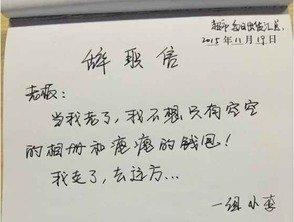 2015年11月19日
辞职信
老板：
当我老了，我不想只有空空
的相册和瘪瘪的钱包！
我走了，去远方…
一组小李